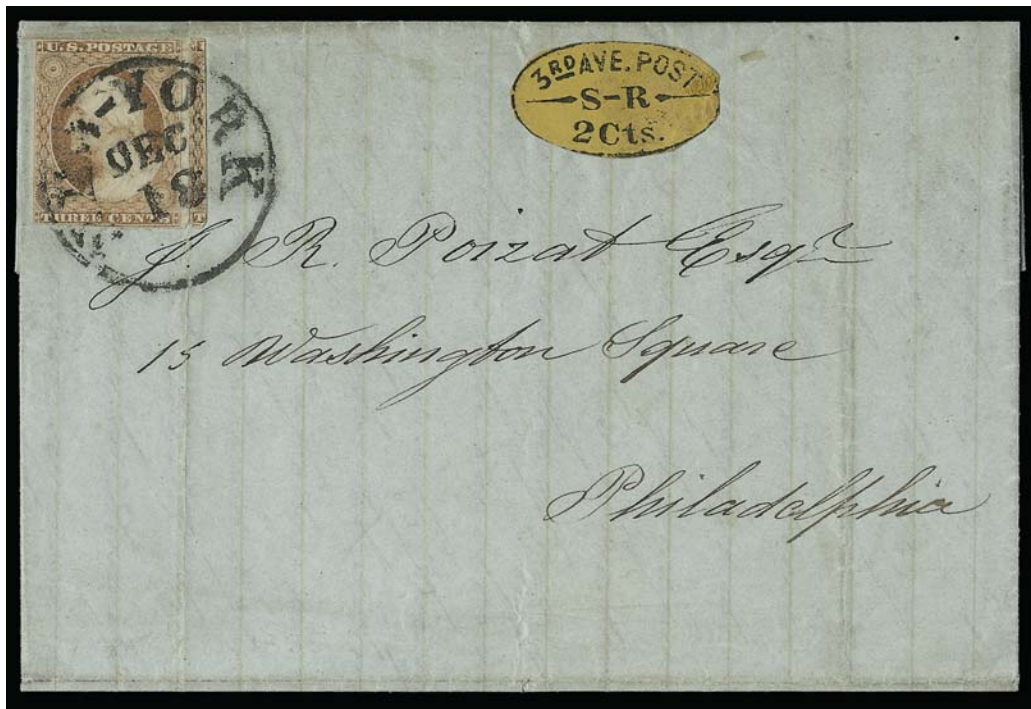 U.S. POSTAGE
THREE CENTS
T
NEW-YORK
DEC
18
3RD AVE. POST
S-R
2Cts.
J. R. Poizat Esqr
15 Washington Square
Philadelphia